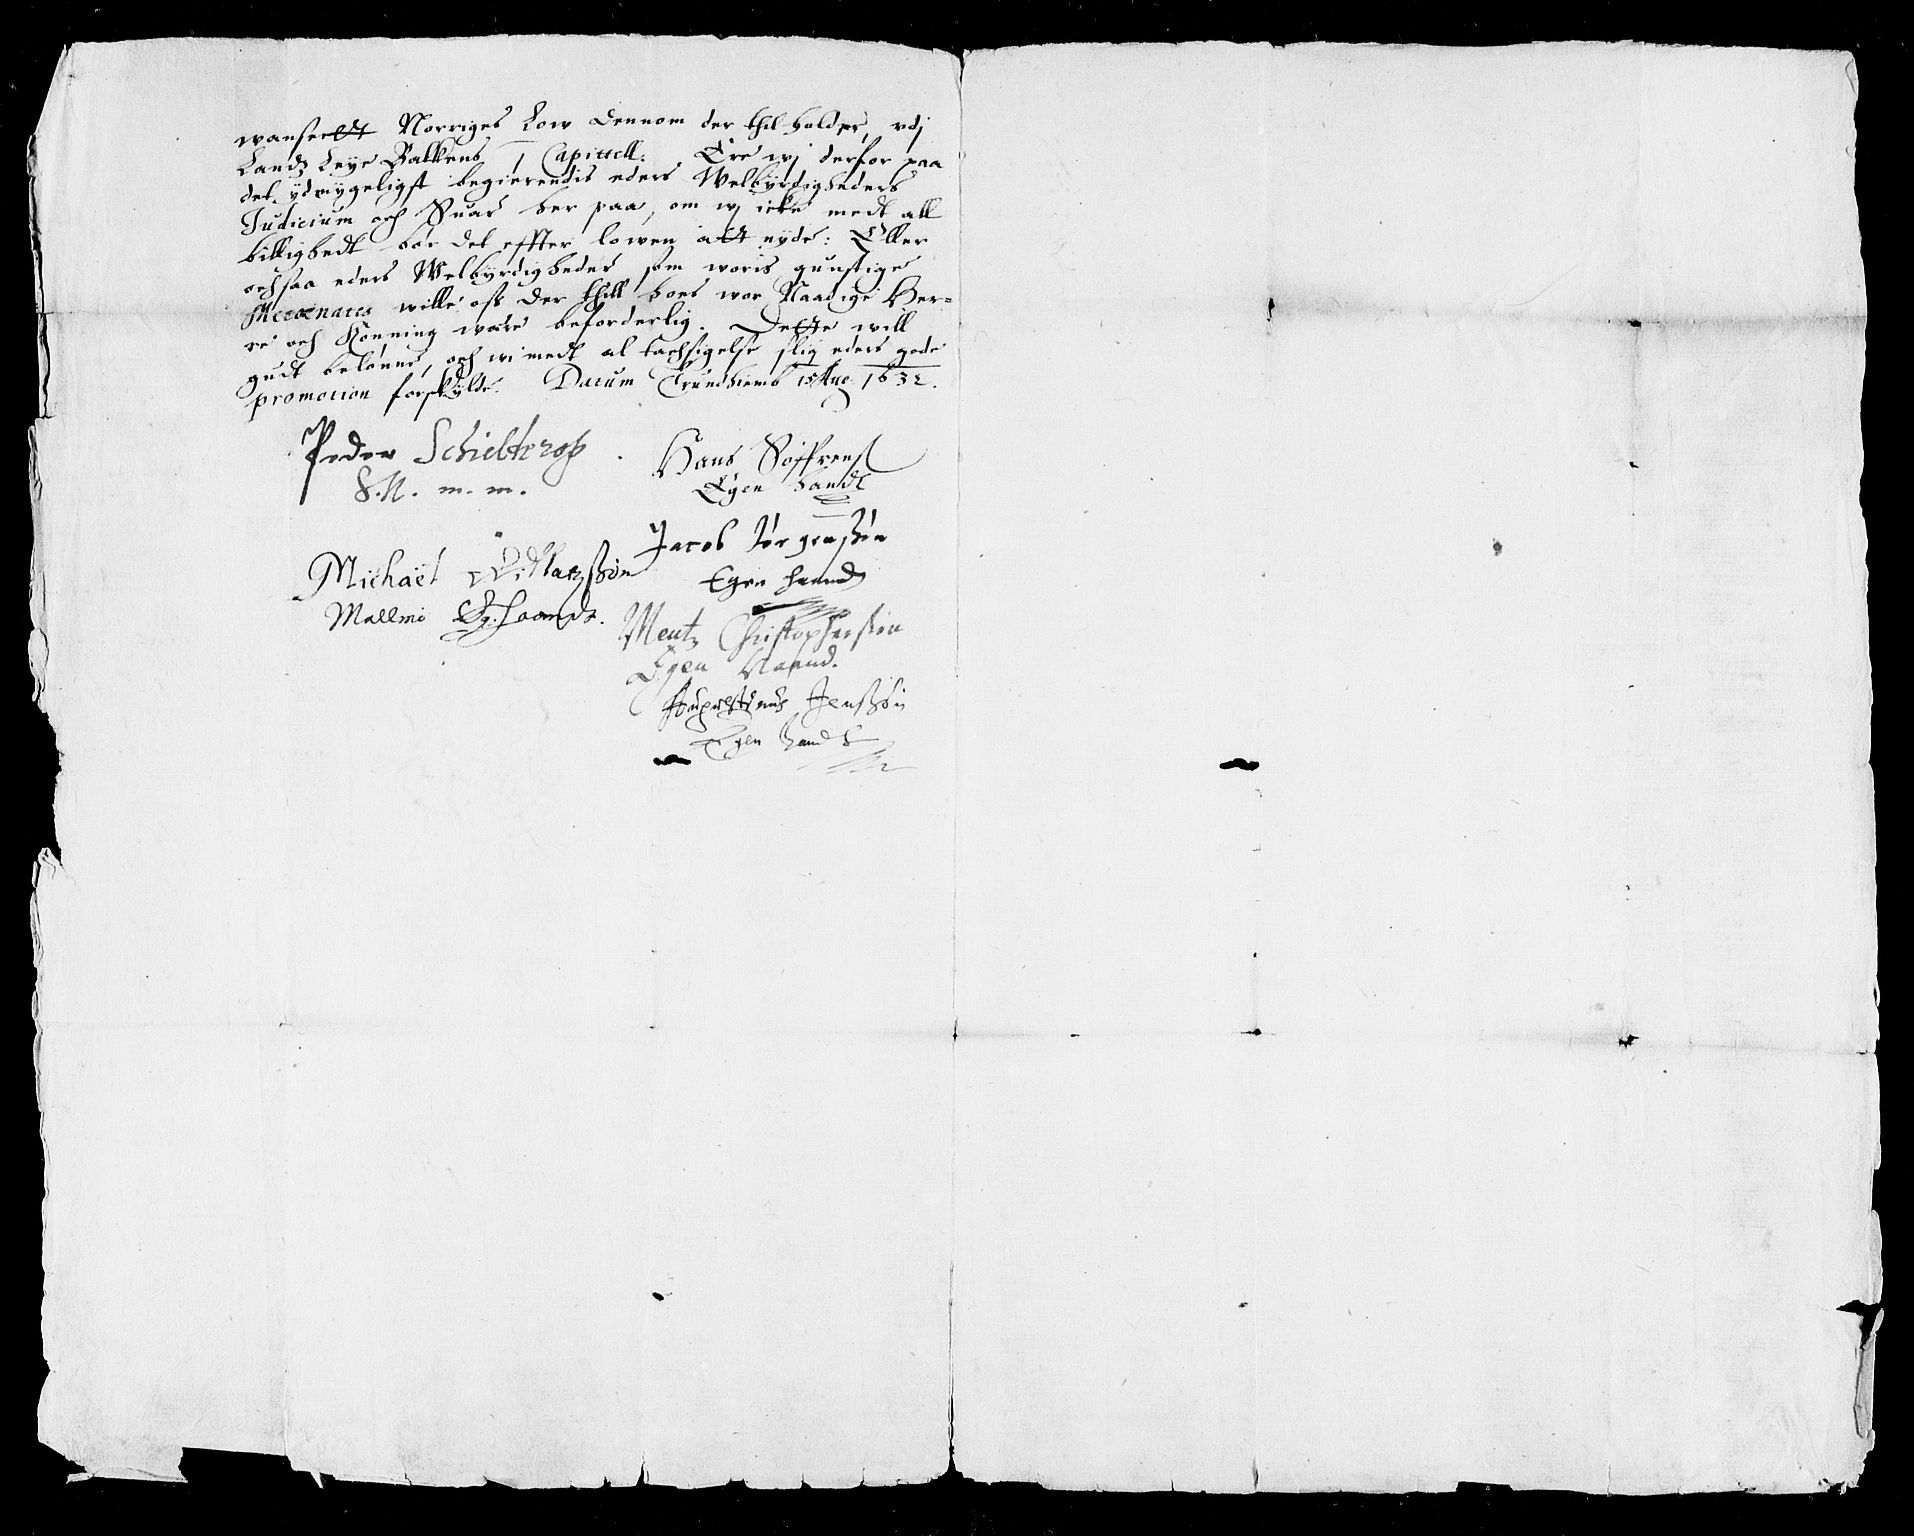 wanseett Norriges Low dennom der thil holder, vdj
Landz Leye Balkens 1 Capittell. Ere wj derfor paa
det ydmygeligst begierendis eders Welbyrdigheders
Judicium och Suar her paa, om wj icke medt all
billighedt bør det effter lowen att nyde: Eller
och saa eders Welbyrdigheder som woris gunstige
Mecænates wille oss der thill hoes wor Naadige Her-
re och Konning wære beforderlig. Dette will
gudt belønne, och wi medt al tachsigelse slig eders gode
promotion forskylde. Datum Trundhiemb 15 Aug. 1632.
Peder Schielderop
S.N. m. m.
Hans Søffrens
Egen handt
Jacob Jørgenssøn
Egen haand
Michaël
Mallmø Eg. haandt.
Mentz Christophersøn
Egen Haand.
Augustinus Jenssøn
Egen handt